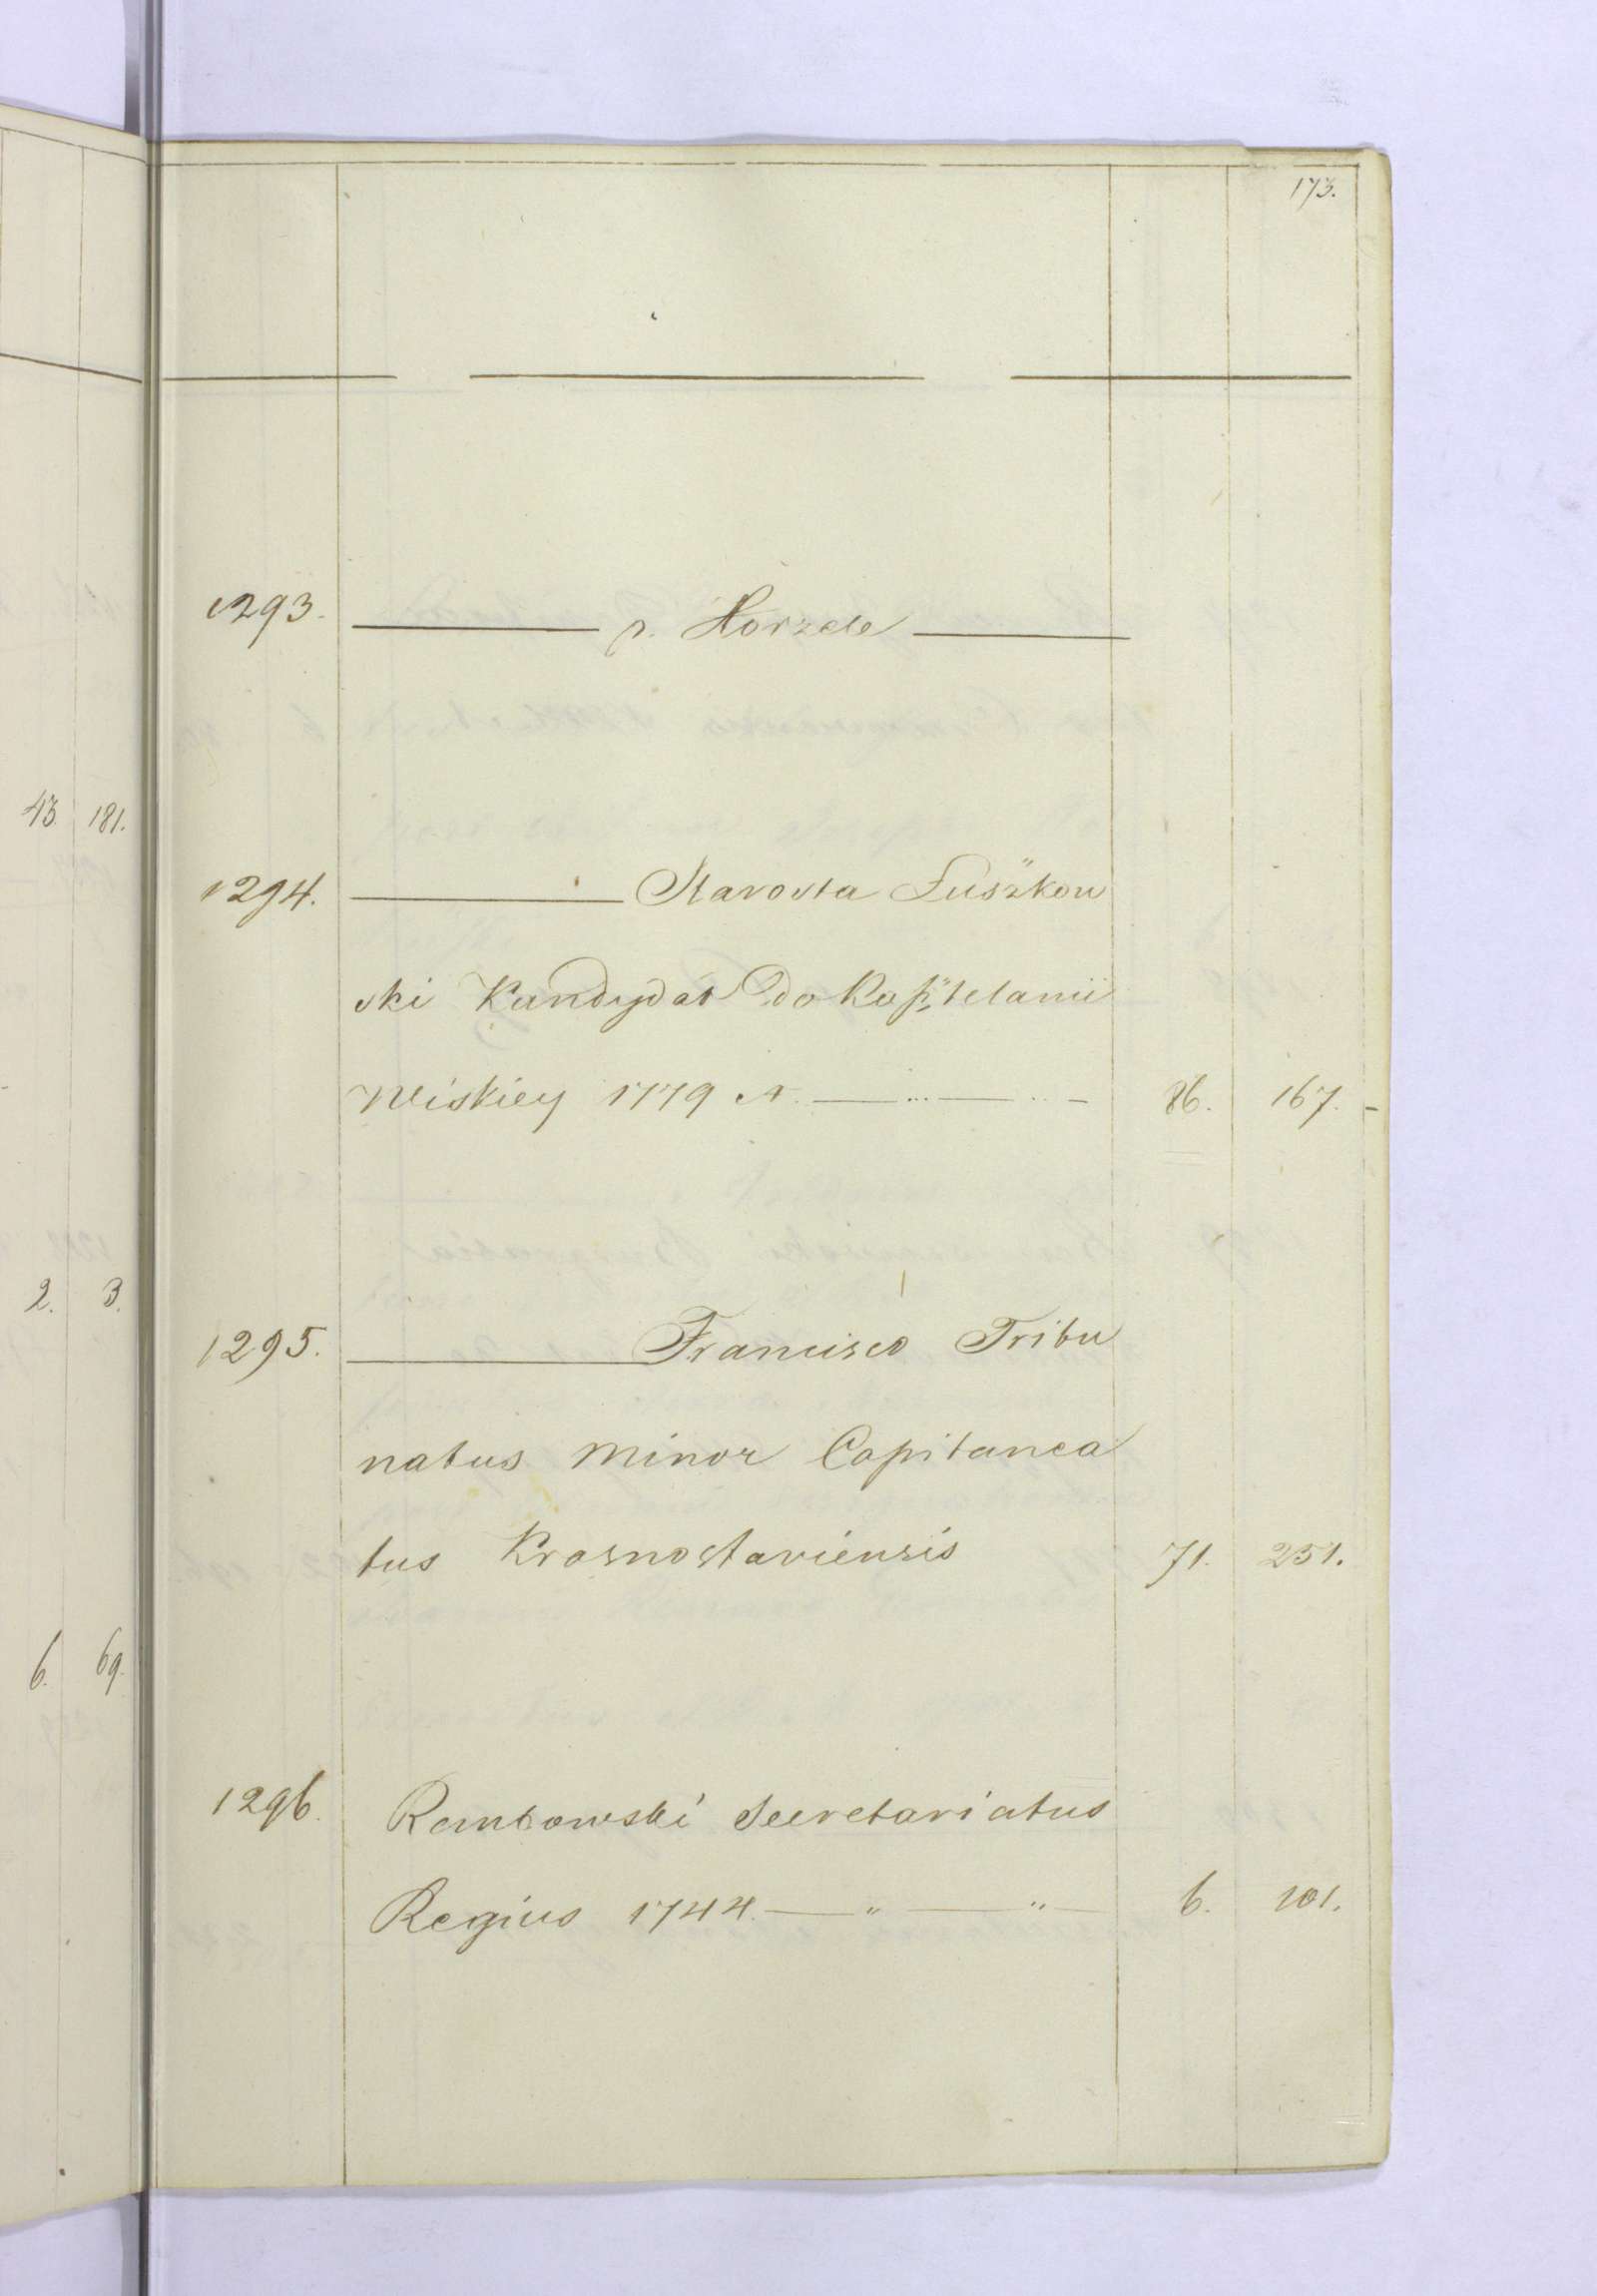 173.
1293. p. Horzele
43. 181.
1294. Starosta Luszkow
ski Kandydat do Kasztelanii
Wiskiey 1779 A. 86. 167.
2. 3.
1295. Francisco Tribu
natus Minor Capitanea
tus Krasnostaviensis 71. 251.
6. 69.
1296. Rantowski Secretariatus
Regius 1744. 6. 101.